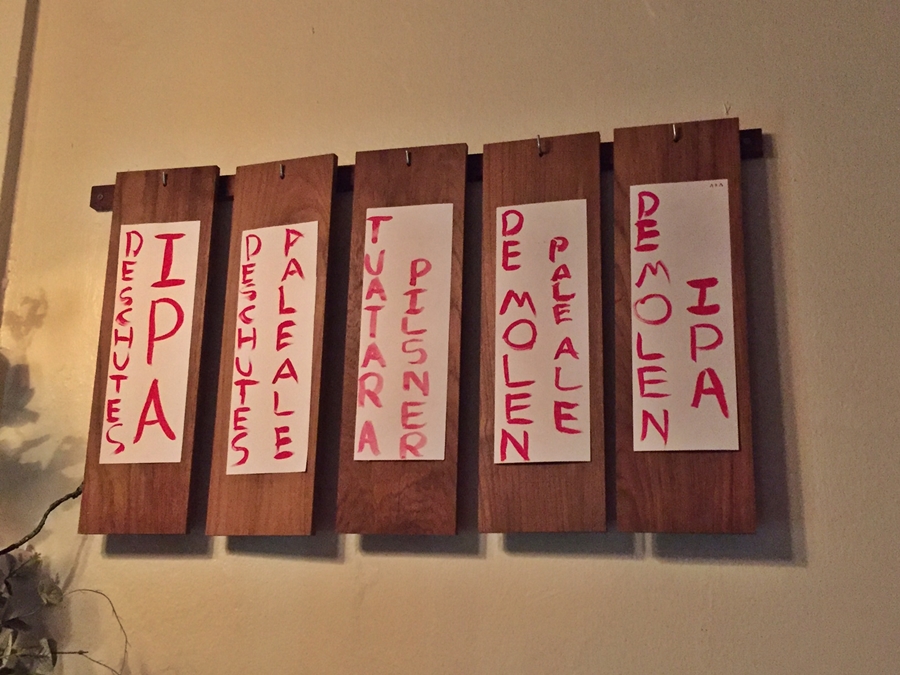 DESCHUTES
IPA
DESCHUTES
PALE ALE
TUATARA
PILSNER
DE MOLEN
PALE ALE
DE MOLEN
IPA